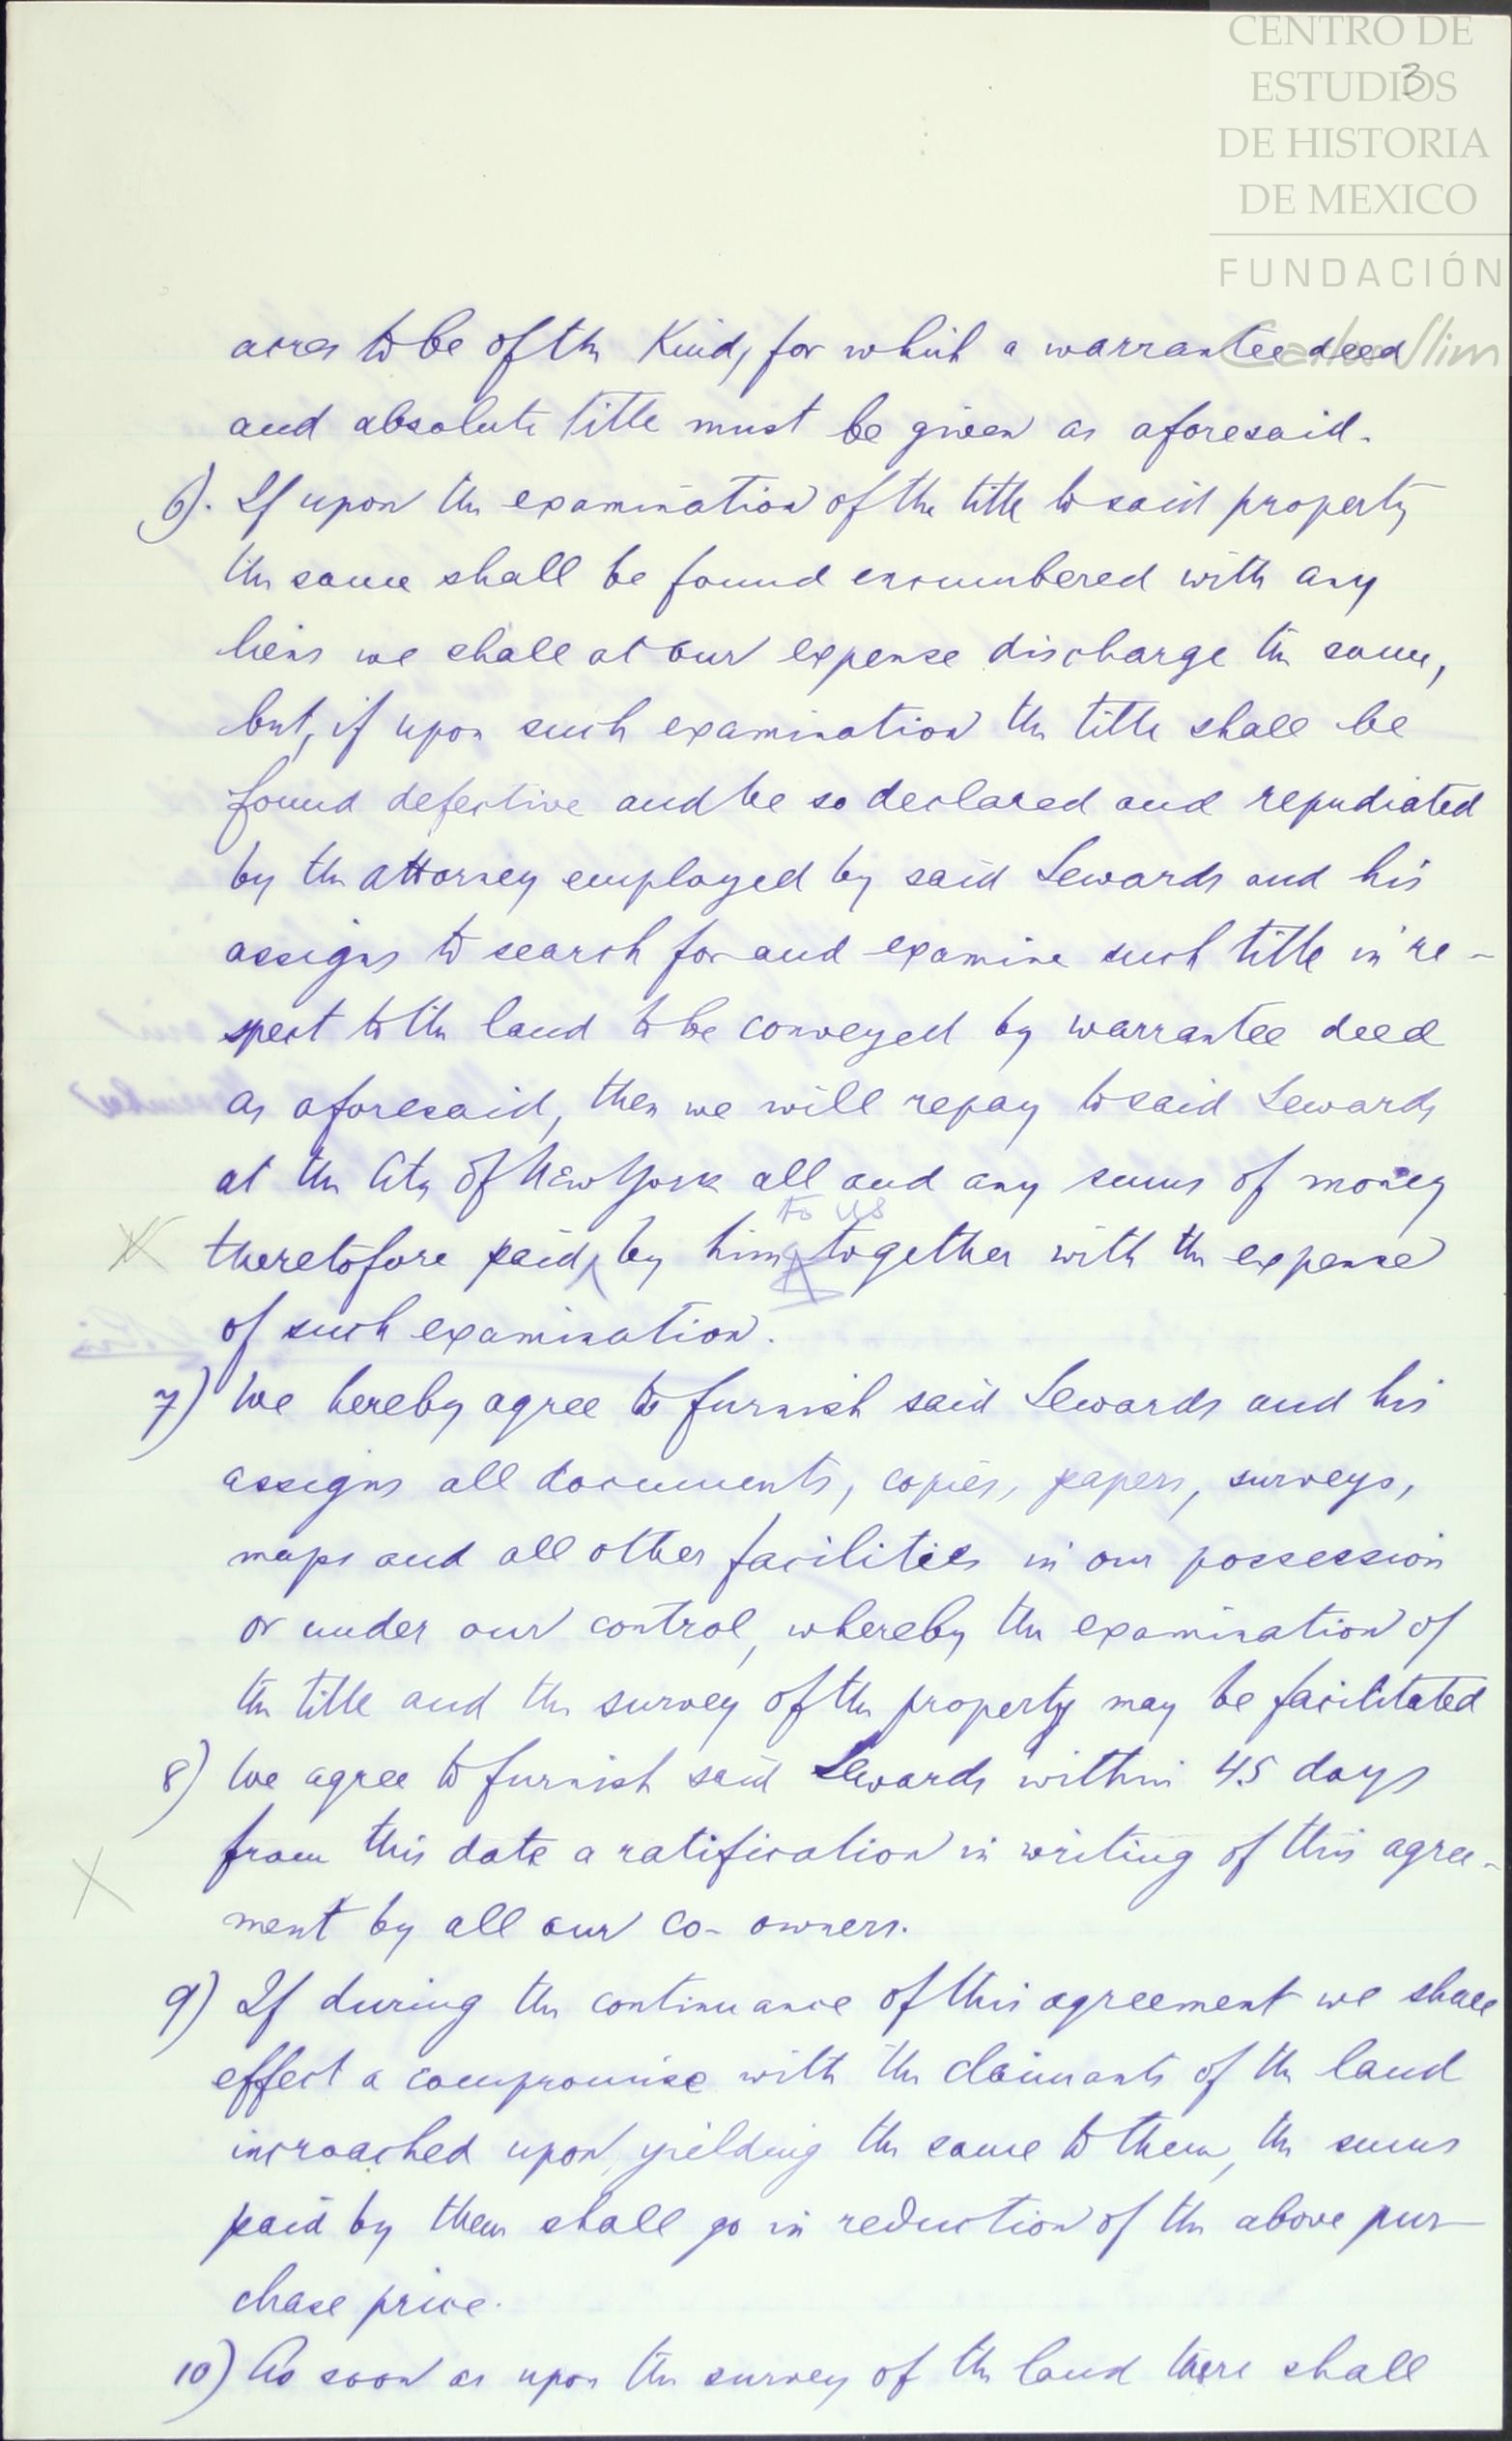 CENTRO DE
ESTUDIOS
3
DE HISTORIA
DE MEXICO
FUNDACIÓN
Carlos Slim
acres to be of the Kind, for which a warrantee deed
and absolute title must be given as aforesaid.
6). If upon the examination of the title to said property
the same shall be found encumbered with any
liens we shall at our expense discharge the same,
but, if upon such examination the title shall be
found defective and be so declared and repudiated
by the attorney employed by said Sewards and his
assigns to search for and examine such title in re-
spect to the land to be conveyed by warrantee deed
as aforesaid, then we will repay to said Sewards
at the City of New York all and any sums of money
to us
theretofore paid by him together with the expense
of such examination.
7) We hereby agree to furnish said Sewards and his
assigns all documents, copies, papers, surveys,
maps and all other facilities in our possession
or under our control, whereby the examination of
the title and the survey of the property may be facilitated
8) We agree to furnish said Sewards within 45 days
from this date a ratification in writing of this agree-
ment by all our co-owners.
9) If during the continuance of this agreement we shall
effect a compromise with the claimants of the land
incroached upon, yielding the same to them, the sums
paid by them shall go in reduction of the above pur-
chase price.
10) As soon as upon the survey of the land there shall